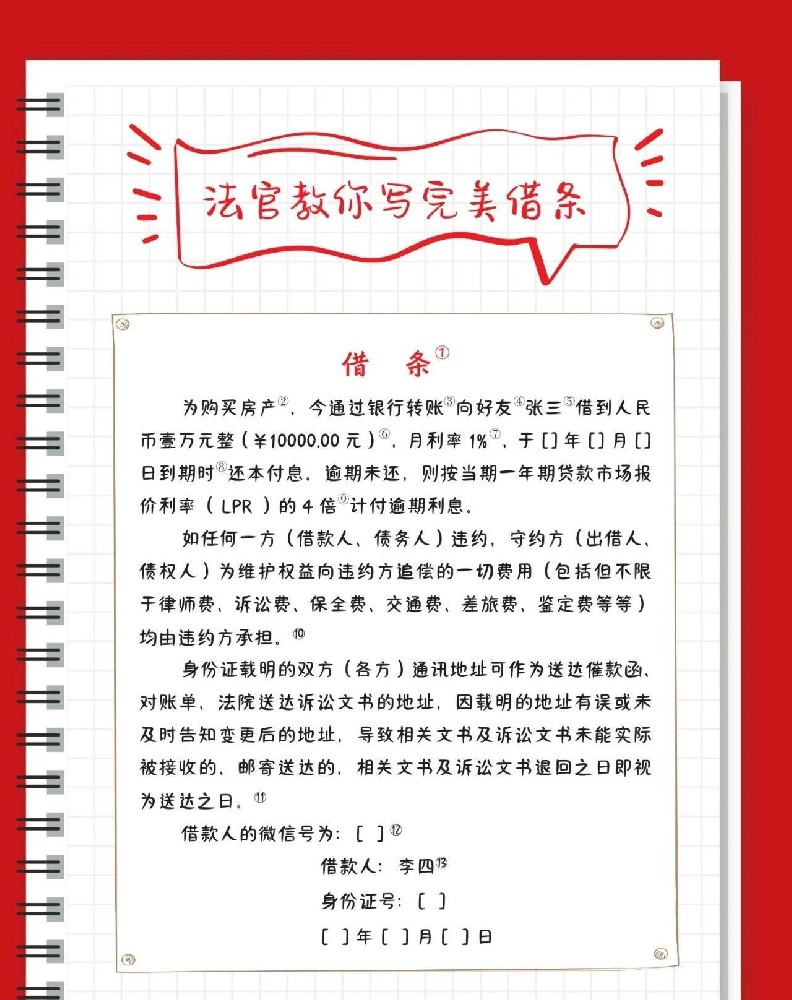 法官教你写完美借条
借 条①
为购买房产②，今通过银行转账③向好友④张三⑤借到人民
币壹万元整（￥10000.00 元）⑥，月利率 1%⑦，于 [ ] 年 [ ] 月 [ ]
日到期时⑧还本付息。逾期未还，则按当期一年期贷款市场报
价利率（ LPR ）的 4 倍⑨计付逾期利息。
如任何一方（借款人、债务人）违约，守约方（出借人、
债权人）为维护权益向违约方追偿的一切费用（包括但不限
于律师费、诉讼费、保全费、交通费、差旅费、鉴定费等等）
均由违约方承担。⑩
身份证载明的双方（各方）通讯地址可作为送达催款函、
对账单、法院送达诉讼文书的地址，因载明的地址有误或未
及时告知变更后的地址，导致相关文书及诉讼文书未能实际
被接收的、邮寄送达的，相关文书及诉讼文书退回之日即视
为送达之日。⑪
借款人的微信号为：[ ]⑫
借款人：李四⑬
身份证号：[ ]
[ ] 年 [ ] 月 [ ] 日